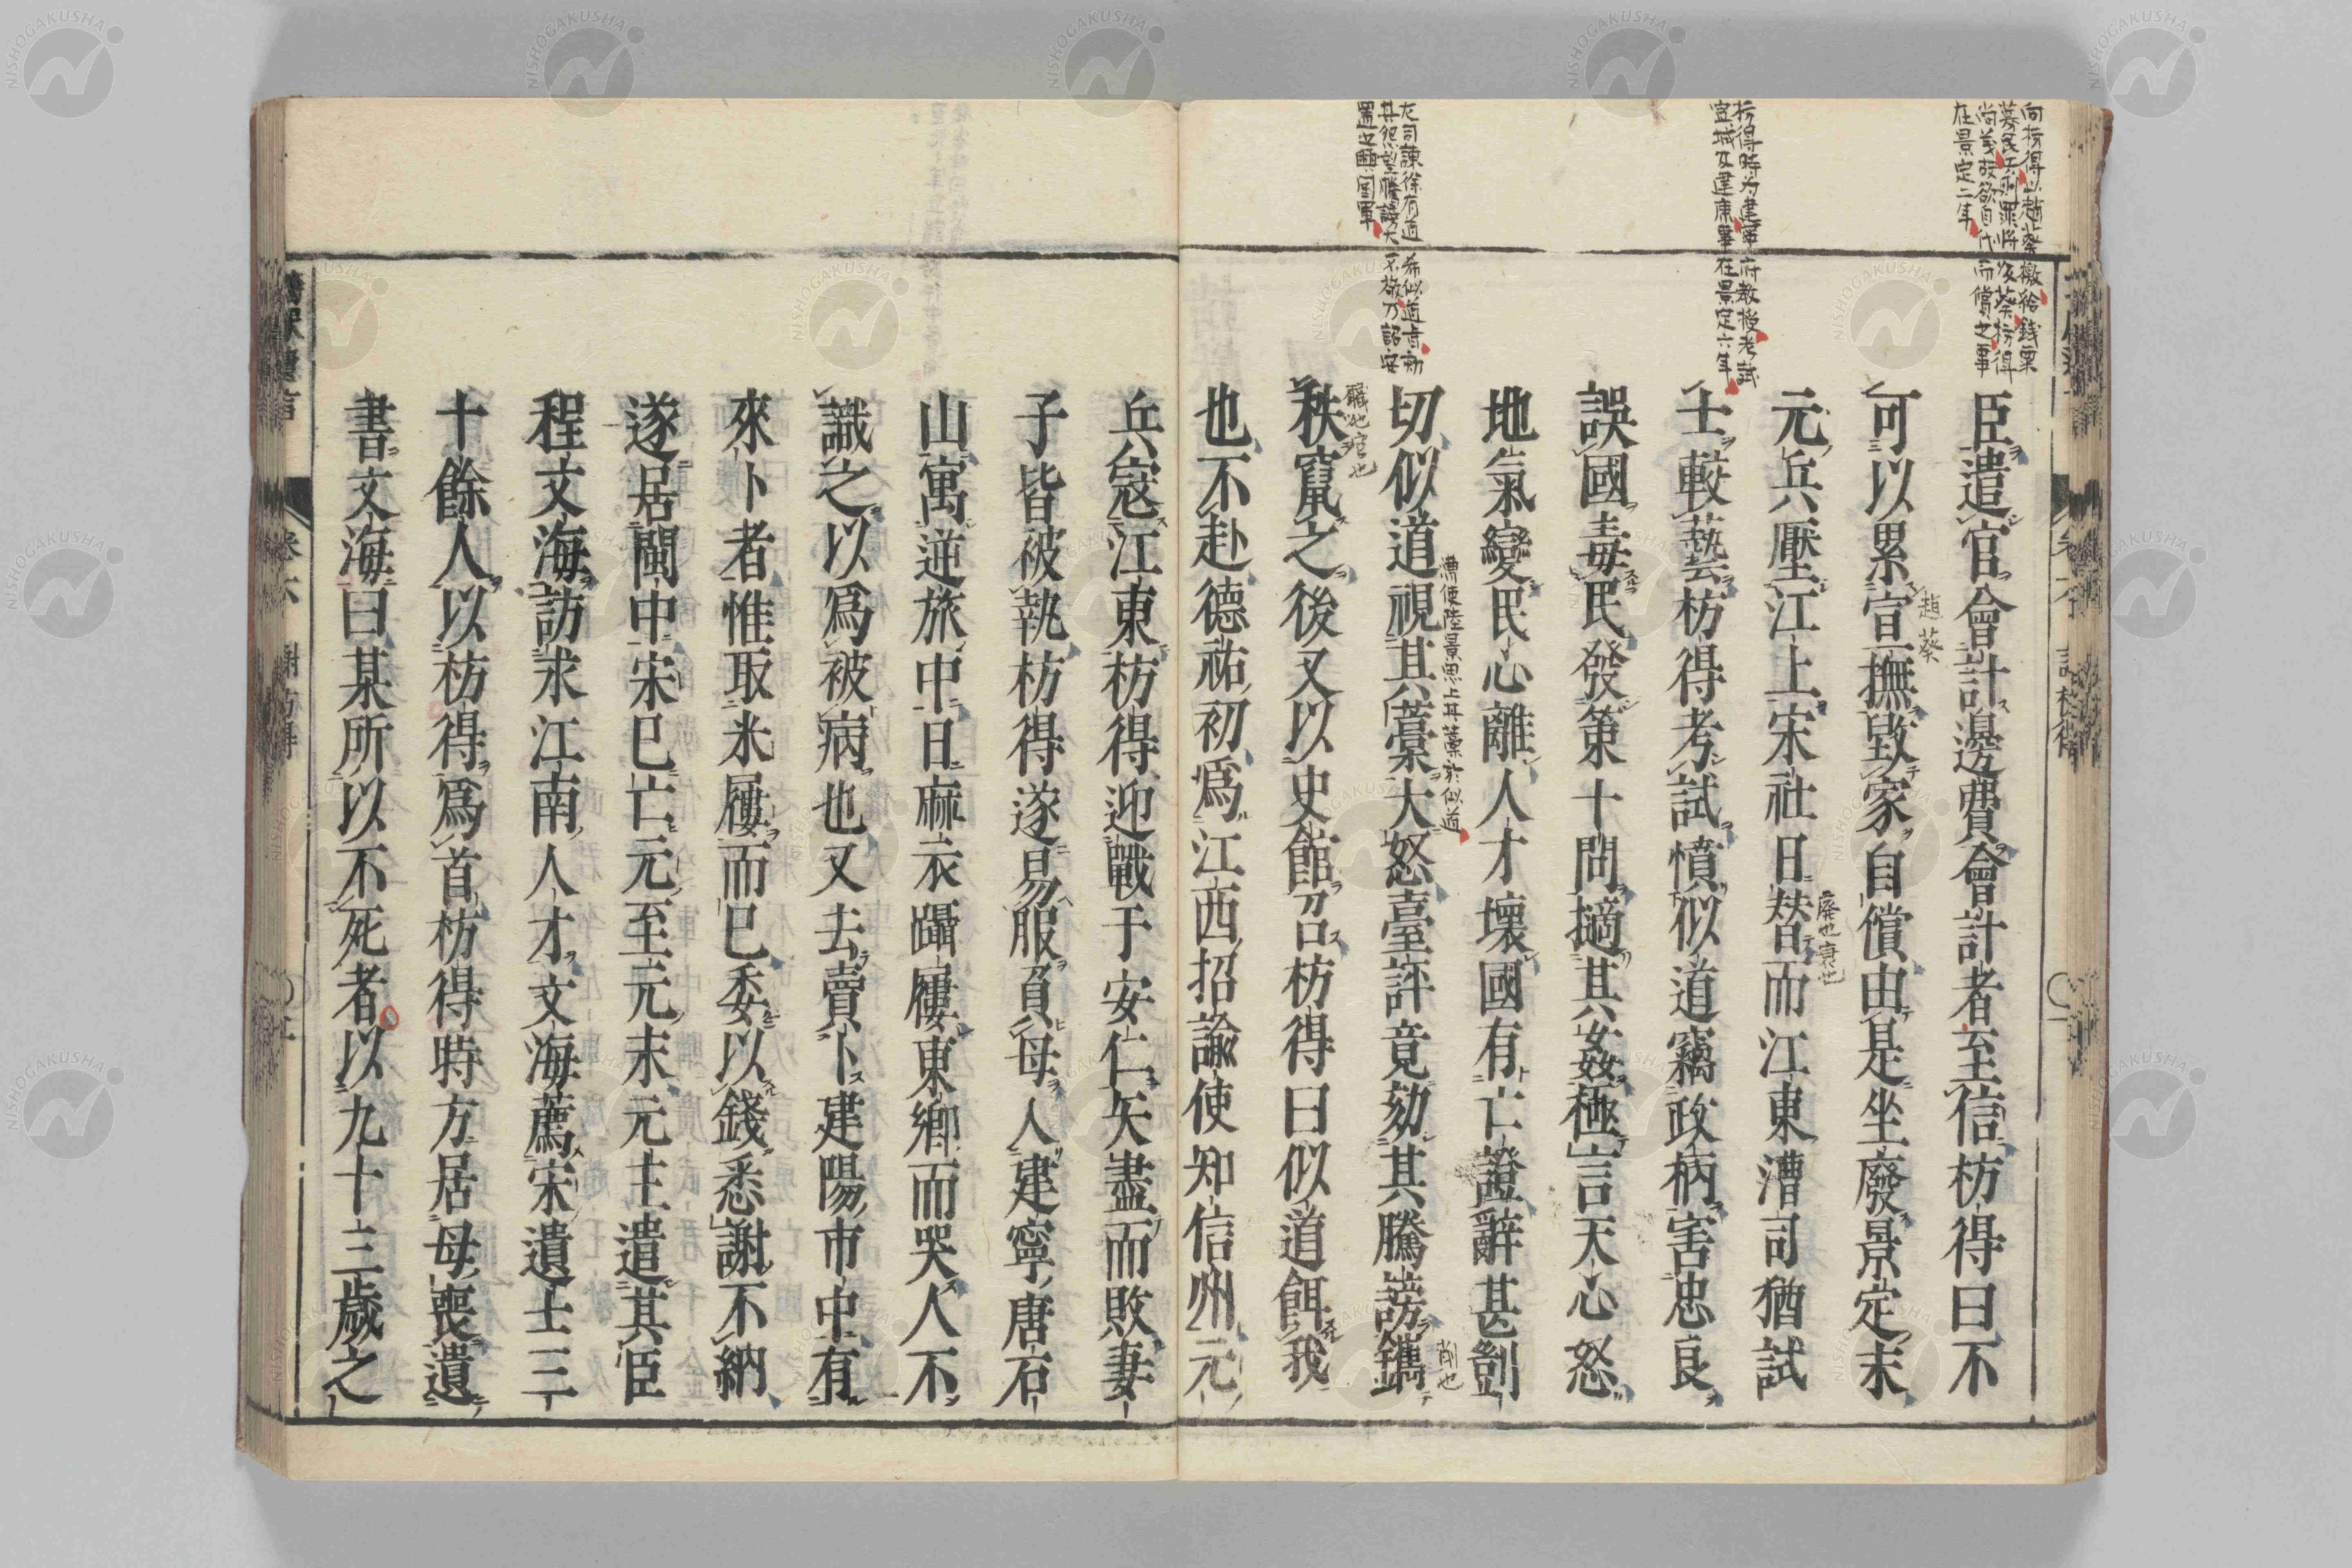 向枋得以趙葵檄給錢粟
募民兵
尚義故欲自代而償之事
在景定二年
枋得時为建寧府教授考試
宣城及建康畢在景定六年
左司諫徐有道希似道旨劾
其怨望騰謗大不敬乃詔安
置之興國軍
臣遣官會計邊費會計者至信枋得曰不
可以累宣撫毀家自償由是坐廢景定末
趙葵
元兵壓江上宋社日替而江東漕司猶試
廢也衰也
士較藝枋得考試憤似道竊政柄害忠良
誤國毒民發策十問擿其姦極言天心怒
地氣變民心離人才壞國有亡證辭甚剴
切似道視其藁大怒臺評竟劾其騰謗鐫
漕使陸景思上其藁於似道
削也
秩竄之後又以史館召枋得曰似道餌我
職也官也
也不赴德祐初爲江西招諭使知信州元
兵寇江東枋得迎戰于安仁矢盡而敗妻
子皆被執枋得遂易服負母人建寧唐石
山寓逆旅中日麻衣躡屨東鄉而哭人不
識之以爲被病也又去賣卜建陽市中有
來卜者惟取米屨而已委以錢悉謝不納
遂居閩中宋已亡元至元末元主遣其臣
程文海訪求江南人才文海薦宋遺士三
十餘人以枋得爲首枋得時方居母喪遺
書文海曰某所以不死者以九十三歲之
卷六
謝枋得